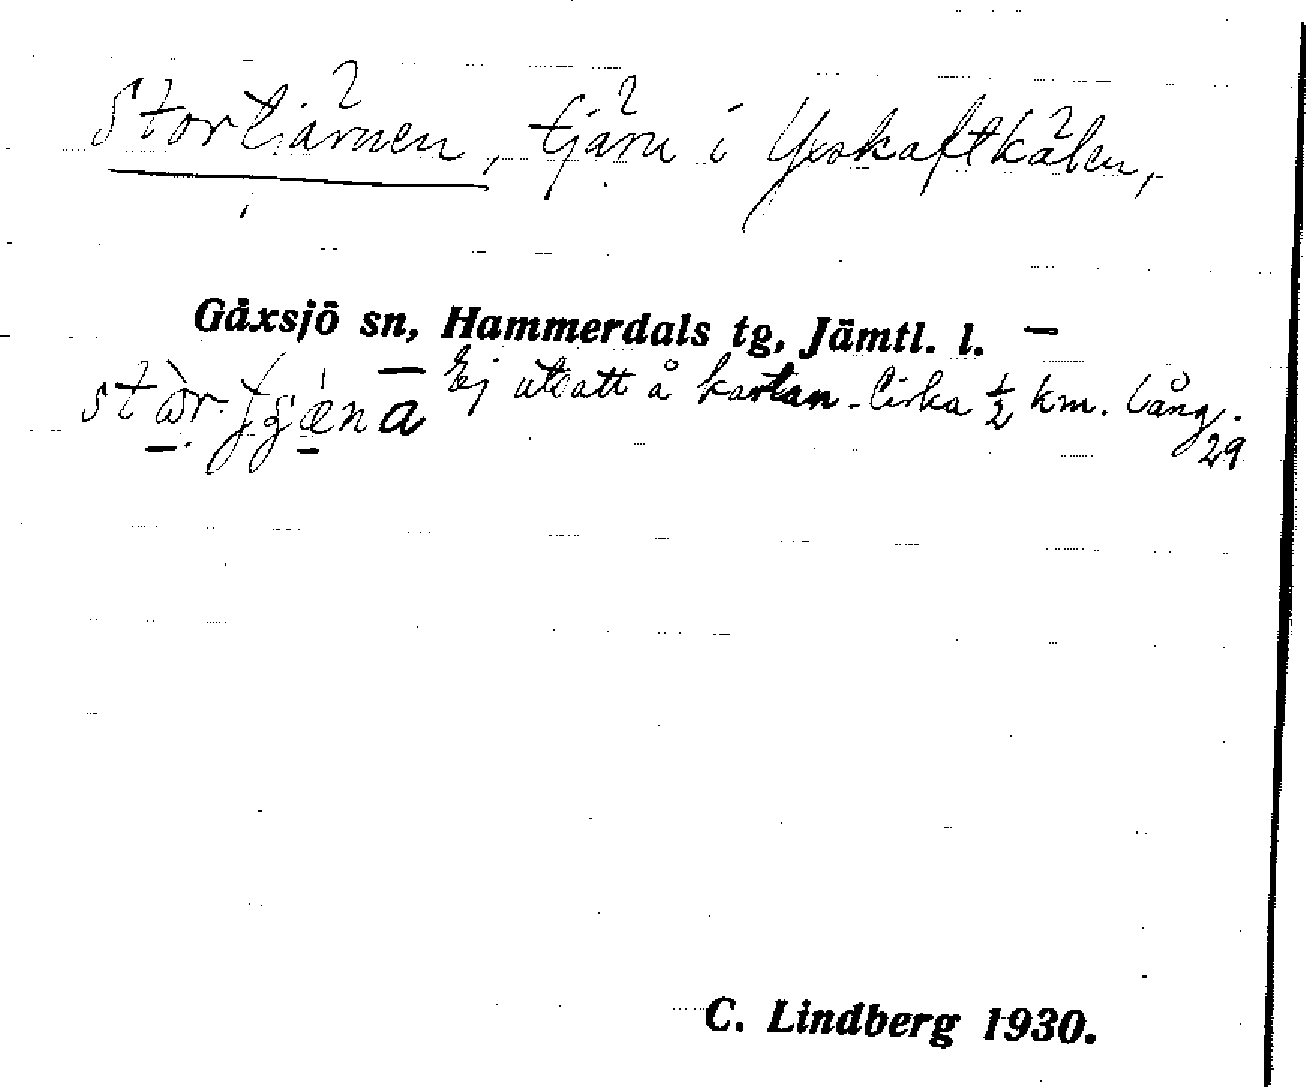 Stortjärnen, tjärn i Yxskaftkälen,
Gåxsjö sn, Hammerdals tg, Jämtl. l. —
Ej utsatt å kartan. Cirka ½ km. lång.
29
C. Lindberg 1930.